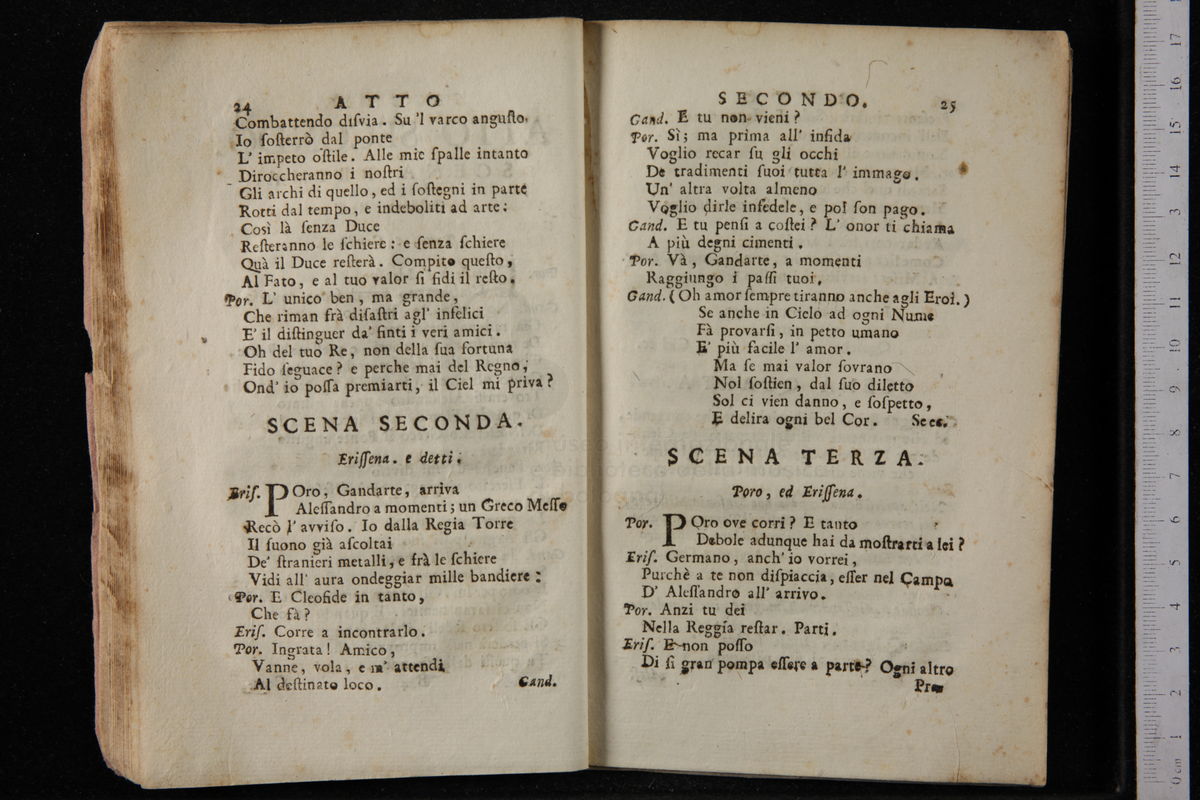 24
ATTO
Combattendo diſvia. Su 'l varco anguſto,
Io ſoſterrò dal ponte
L' impeto oſtile. Alle mie ſpalle intanto
Diroccheranno i noſtri
Gli archi di quello, ed i ſoſtegni in parte
Rotti dal tempo, e indeboliti ad arte:
Così là ſenza Duce
Reſteranno le ſchiere: e ſenza ſchiere
Quà il Duce reſterà. Compito queſto,
Al Fato, e al tuo valor ſi fidi il reſto.
Por. L' unico ben, ma grande,
Che riman frà diſaſtri agl' infelici
E' il diſtinguer da' finti i veri amici.
Oh del tuo Re, non della ſua fortuna
Fido ſeguace? e perche mai del Regno,
Ond' io poſſa premiarti, il Ciel mi priva?
SCENA SECONDA.
Eriſſena. e detti.
Eriſ. POro, Gandarte, arriva
Aleſſandro a momenti; un Greco Meſſo
Recò l' avviſo. Io dalla Regia Torre
Il ſuono già aſcoltai
De' ſtranieri metalli, e frà le ſchiere
Vidi all' aura ondeggiar mille bandiere:
Por. E Cleofide in tanto,
Che fà?
Eriſ. Corre a incontrarlo.
Por. Ingrata! Amico,
Vanne, vola, e m' attendi
Al deſtinato loco.
Gand.
SECONDO.
25
Gand. E tu non vieni?
Por. Sì; ma prima all' infida
Voglio recar ſu gli occhi
De tradimenti ſuoi tutta l' immago.
Un' altra volta almeno
Voglio dirle infedele, e poI ſon pago.
Gand. E tu penſi a coſtei? L' onor ti chiama
A più degni cimenti.
Por. Và, Gandarte, a momenti
Raggiungo i paſſi tuoi.
Gand. (Oh amor ſempre tiranno anche agli Eroi.)
Se anche in Cielo ad ogni Nume
Fà provarſi, in petto umano
E' più facile l' amor.
Ma ſe mai valor ſovrano
Nol ſoſtien, dal ſuo diletto
Sol ci vien danno, e ſoſpetto,
E delira ogni bel Cor. Se ec.
SCENA TERZA.
Poro, ed Eriſſena.
Por. POro ove corri? E tanto
Debole adunque hai da moſtrarti a lei?
Eriſ. Germano, anch' io vorrei,
Purchè a te non diſpiaccia, eſſer nel Campo
D' Aleſſandro all' arrivo.
Por. Anzi tu dei
Nella Reggía reſtar. Parti.
Eriſ. E non poſſo
Di ſi gran pompa eſſere a parte? Ogni altro